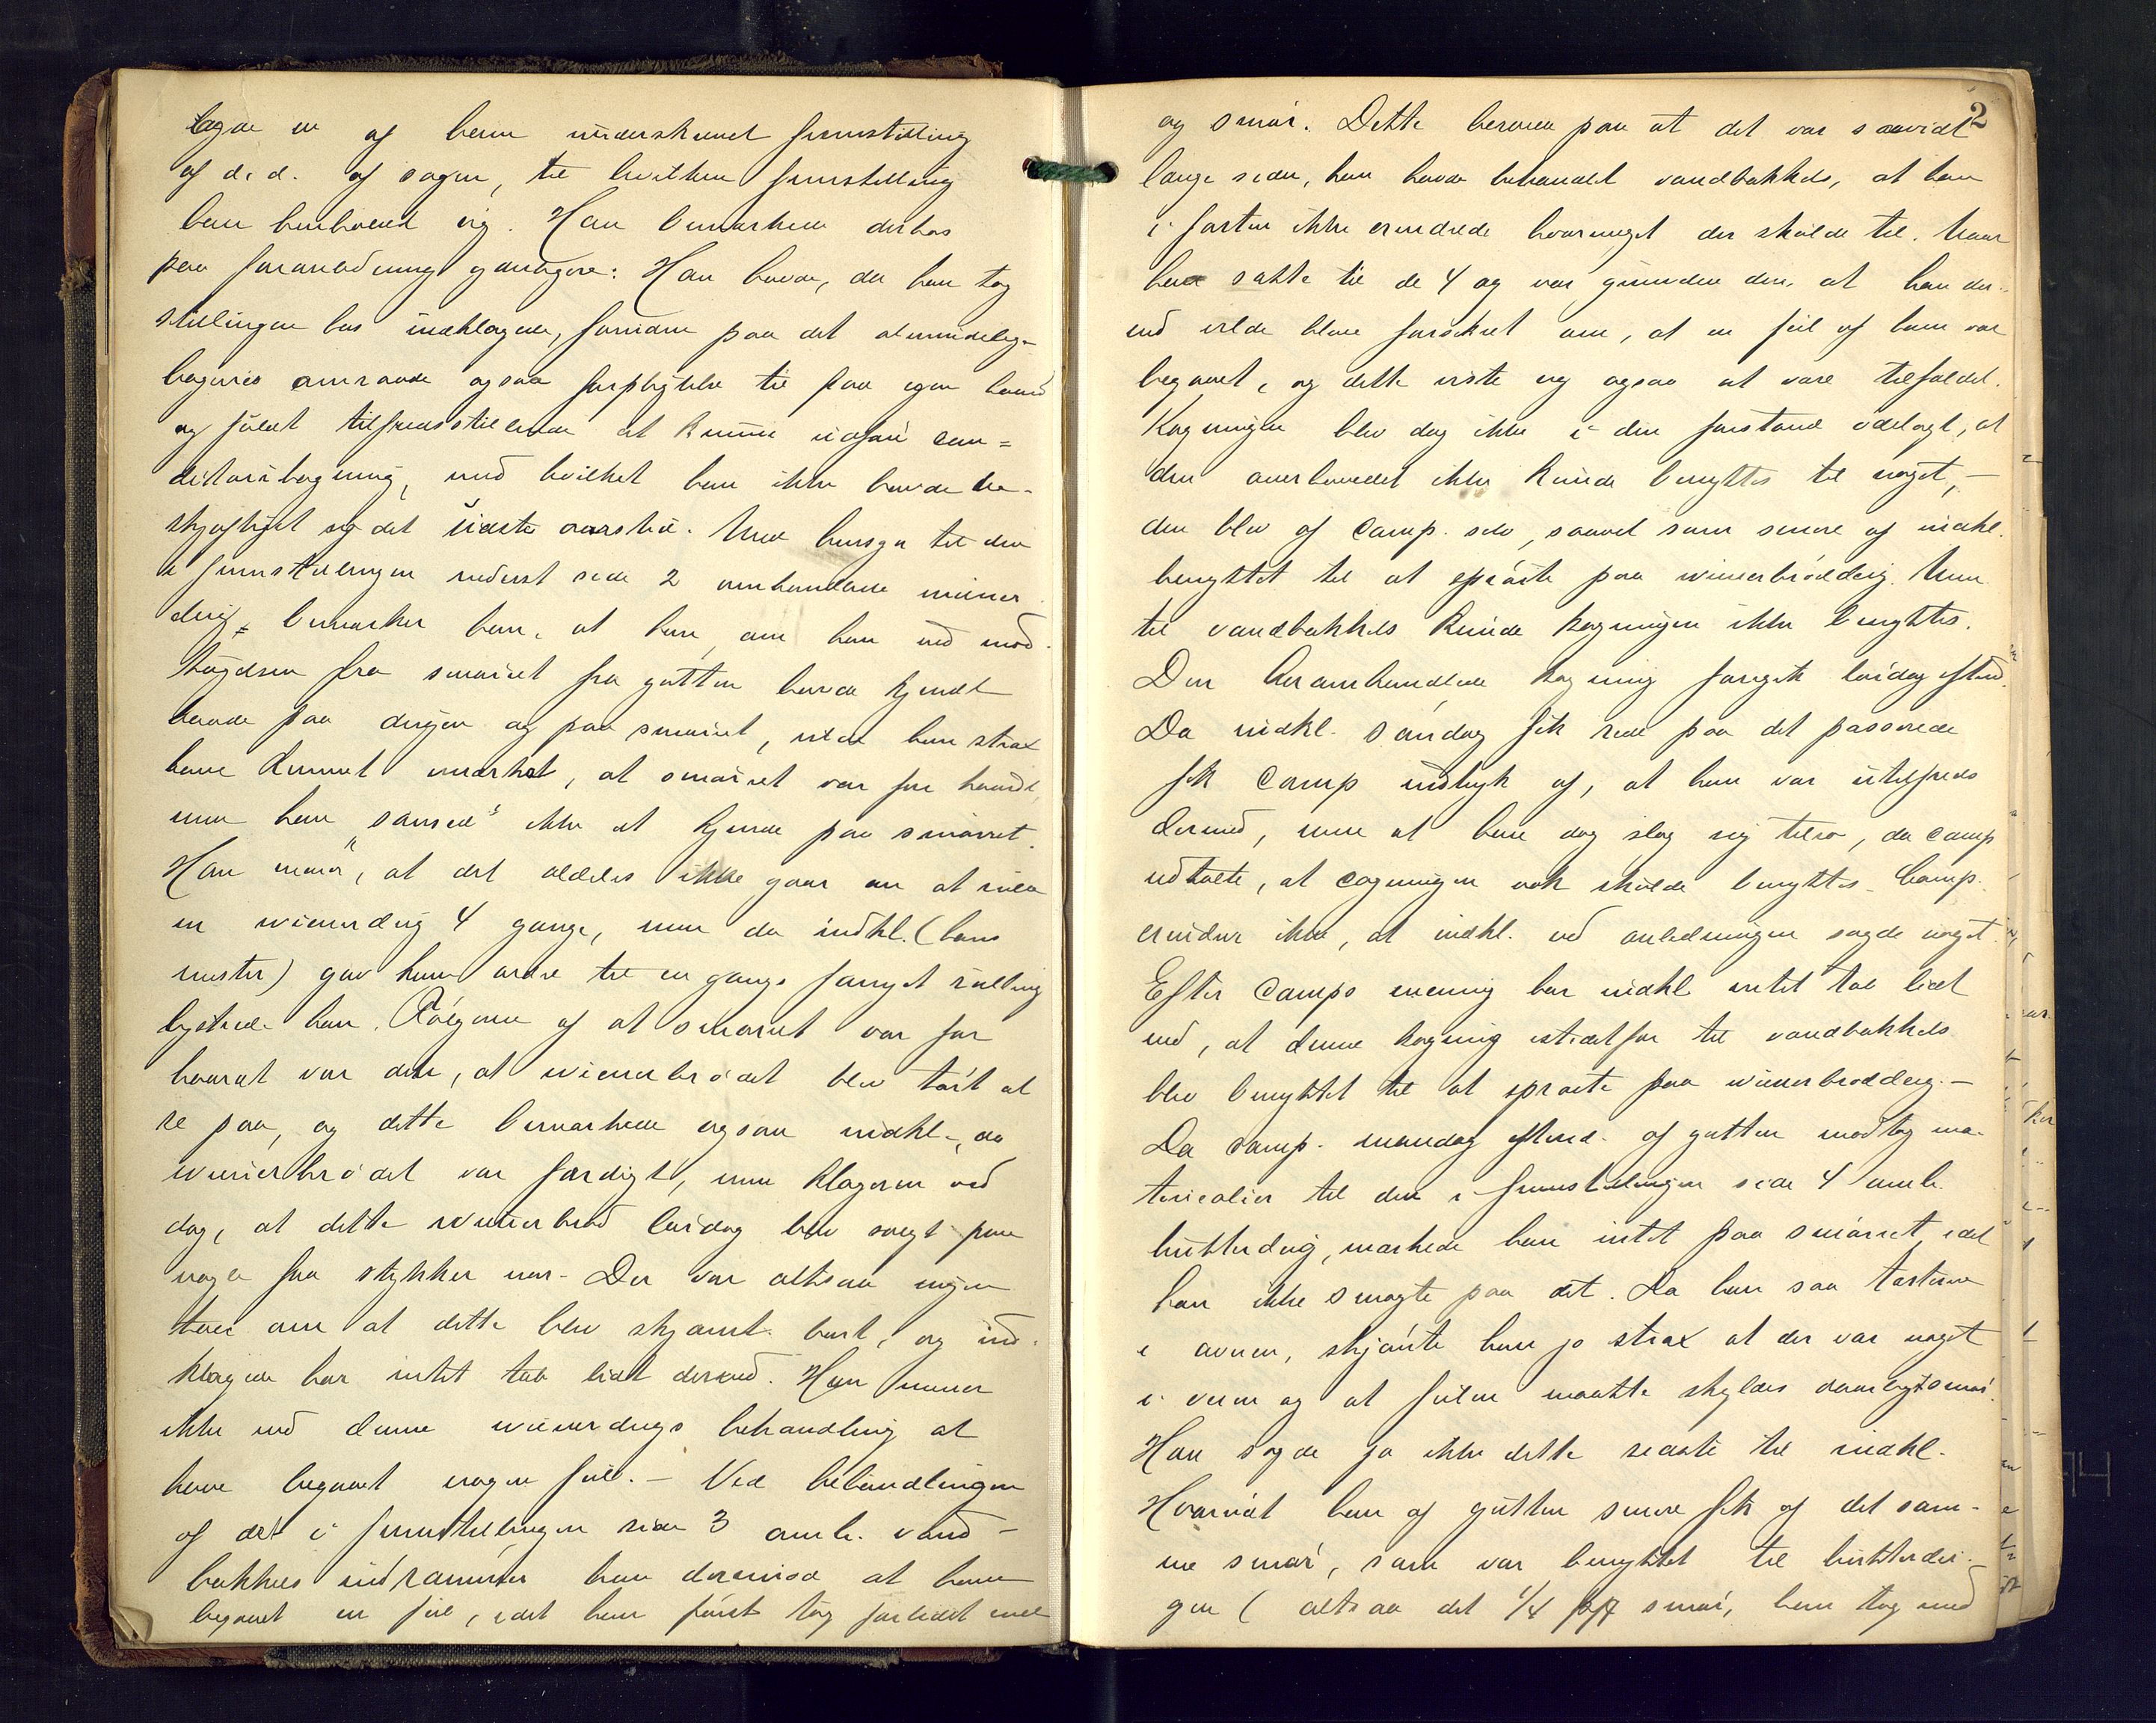 lagde en af ham underskrevet fremstilling
af d. d. af sagen, til hvilken fremstilling
han henholdt sig. Han bemærkede derhos
paa foranledning yderligere: Han havde, da han tog
stillingen hos indklagede, foruden paa det almindelige
bageries omraade ogsaa forpligtelse til paa egen haand
og fuldt tilfredsstillende at kunne udføre con=
ditoribagning, med hvilket han ikke havde be-
skjæftiget sig det sidste aarstid. Med hensyn til den
i fremstillingen nederst side 2 omhandlede wiener
deig bemærker han, at han, om han ved mod-
tagelsen fra smørret fra gutten havde kjendt
baade paa deigen og paa smørret, vilde han strax
have kunnet mærket, at smørret var for haardt,
men han "sansed" ikke at kjende paa smørret.
Han mener, at det aldeles ikke gaar an at rulle
en wienerdeig 4 gange, men da indkl. (hans
mester) gav ham ordre til en gangs forøget rulling
lystrede han. Følgerne af at smørret var for
haardt var den, at wienerbrødet blev tørt at
se paa, og dette bemærkede ogsaa indkl., da
wienerbrødet var færdigt, men klageren ved
dog, at dette wienerbrød lørdag blev solgt paa
nogle faa stykker nær. Der var altsaa ingen
tale om at dette blev skjæmt bort, og ind-
klagede har intet tab lidt derved. Han mener
ikke ved denne wienerdeigs behandling at
have begaaet nogen feil. – Ved behandlingen
af det i fremstillingen side 3 omh. vand-
bakkels indrømmer han derimod at have
begaaet en feil, idet han først tog forlidet mel
2
og smør. Dette beroede paa at det var saavidt
længe siden, han havde behandlet vandbakkels, at han
i farten ikke erindrede hvormeget der skulde til. Naar
han satte til de 4 æg var grunden den, at han der-
ved vilde blive forsikret om, at en feil af ham var
begaaet, og dette viste sig ogsaa at være tilfældet.
Kogningen blev dog ikke i den forstand ødelagt, at
den overhovedet ikke kunde benyttes til noget, –
den blev af Comp. selv, saavel som senere af indkl.
benyttet til at sprøite paa wienerbrøddeig. Men
til vandbakkels kunde kogningen ikke benyttes.
Den heromhandlede kogning foregik lørdag efterm.
Da indkl. søndag fik rede paa det passerede
fik Comp indtryk af, at han var utilfreds
dermed, men at han dog slog sig tilro, da Comp
udtalte, at cogningen nok skulde benyttes. Comp.
erindrer ikke, at indkl. ved anledningen sagde noget.
Efter Comps mening har indkl intet tab lidt
ved, at denne kogning istedetfor til vandbakkels
blev benyttet til at sprøite paa wienerbrøddeig. –
Da Comp. mandag efterm. af gutten modtog ma-
terialier til den i fremstillingen side 4 omh.
butterdeig, mærkede han intet paa smørret, idet
han ikke smagte paa det. Da han saa tærterne
i ovnen, skjønte han jo strax at der var noget
i veien og at feilen maatte skyldes daarligt smør.
Han sagde jo ikke dette seneste til indkl.
Hvorvidt han af gutten senere fik af det sam-
me smør, som var benyttet til butterdei-
gen (altsaa det 1/4 smør, han tog med